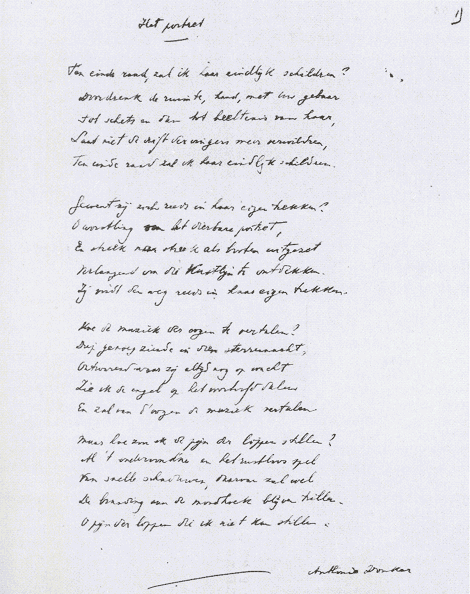 Het portret
1)
Ten einde raad, zal ik haar eindlijk schildren?
Doordrenk de ruimte, hand, met uw gebaar
Tot schets en dan tot beeltenis van haar,
Laat niet de drift der vingers meer verwildren,
Ten einde raad zal ik haar eindlijk schildren.
Gewent zij zich reeds in haar eigen trekken?
O worstling om het dierbare portret,
En streek naar streek als broken uitgezet
Verlangend om die te ontdekken.
Zij vindt den weg reeds in haar eigen trekken.
Hoe de muziek der oogen te vertalen?
genoeg ziende in dien sterrennacht,
waar zij altijd nog op wacht
Zie ik de engel op het voorhoofd dalen
En zal van d'oogen de muziek vertalen
Maar hoe zou ik de pijn der lippen stillen?
Al 't en het rustloos spel
Van snelle schaduwen, zal wel
De branding aan de mondhoek blijven trillen.
O pijn der lippen die ik niet kan stillen.
Anthonie Donker